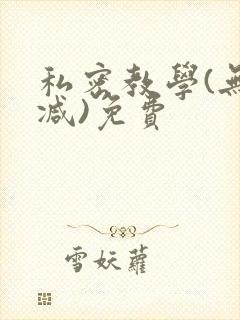 私密教學(無
減)免費
雪妖蘿